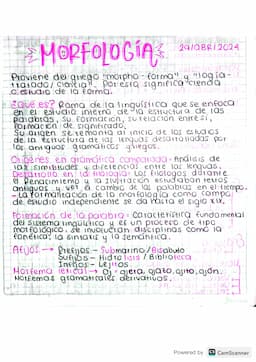 MORFOLOGÍA
29/ABRI/2024
Proviene del griego "morpho-forma" y "logia-
tratado/ciencia". Por esto significa ciencia
o estudio de la forma.
¿Qué es? Rama de la lingüística que se enfoca
en el estudio interno de la estructura de las
palabras, su formación, su relación entre sí,
formación de significado.
Su origen se remonta al inicio de los estudios
de la estructura de las lenguas desarrolladas por
los antiguos gramáticos griegos.
Orígenes en gramática comparada - Análisis de
las similitudes y diferencias entre las lenguas.
Desarrollo en la filología - Los filólogos durante
el Renacimiento y la Ilustración estudiaron textos
antiguos y el cambio de las palabras en el tiempo.
- La formalización de la morfología como campo
de estudio independiente se da hasta el siglo XIX.
Formación de la palabra - Característica fundamental
del sistema lingüístico y es un proceso de tipo
morfológico. se involucran disciplinas como la
fonética, la sintaxis y la semántica.
Afijos → Prefijos - Submarino/Bisabuelo
Sufijos - Hidrólisis/Biblioteca
Infijos - Lejitos.
Morfema léxical → Oj - ojera, ojazo, ojito, ojón.
Morfemas gramaticales derivativos.
Powered by CS CamScanner